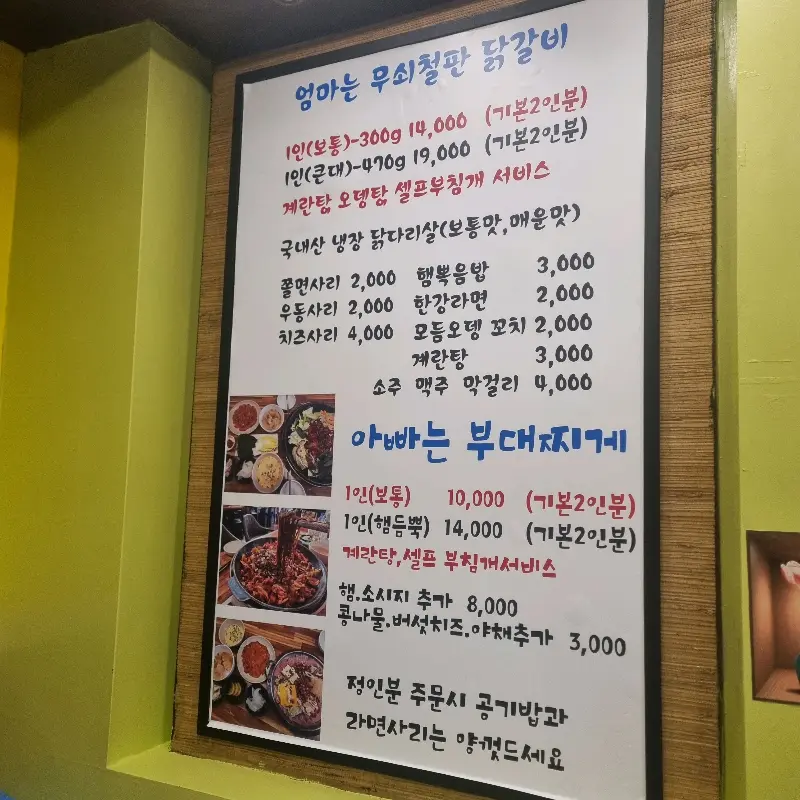 엄마는 무쇠철판 닭갈비
1인(보통)-300g 14,000 (기본2인분)
1인(큰대)-470g 19,000 (기본2인분)
계란탕 오뎅탕 셀프부침개 서비스
국내산 냉장 닭다리살(보통맛,매운맛)
쫄면사리 2,000 햄뽁음밥 3,000
우동사리 2,000 한강라면 2,000
치즈사리 4,000 모듬오뎅 꼬치 2,000
계란탕 3,000
소주 맥주 막걸리 4,000
아빠는 부대찌게
1인(보통) 10,000 (기본2인분)
1인(햄듬뿍) 14,000 (기본2인분)
계란탕,셀프 부침개서비스
햄.소시지 추가 8,000
콩나물.버섯치즈.야채추가 3,000
정인분 주문시 공기밥과
라면사리는 양껏드세요